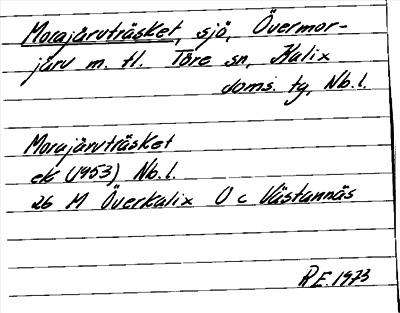 Morajärvträsket, sjö, Övermor-
järv m. fl. Töre sn, Kalix
doms. tg, Nb. l.
Morajärvträsket
ek (1953) Nb. l.
26 M Överkalix O c Västannäs
R E. 1973